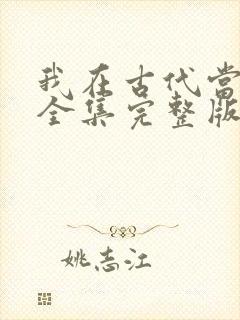 我在古代当
全集完整版
姚志江